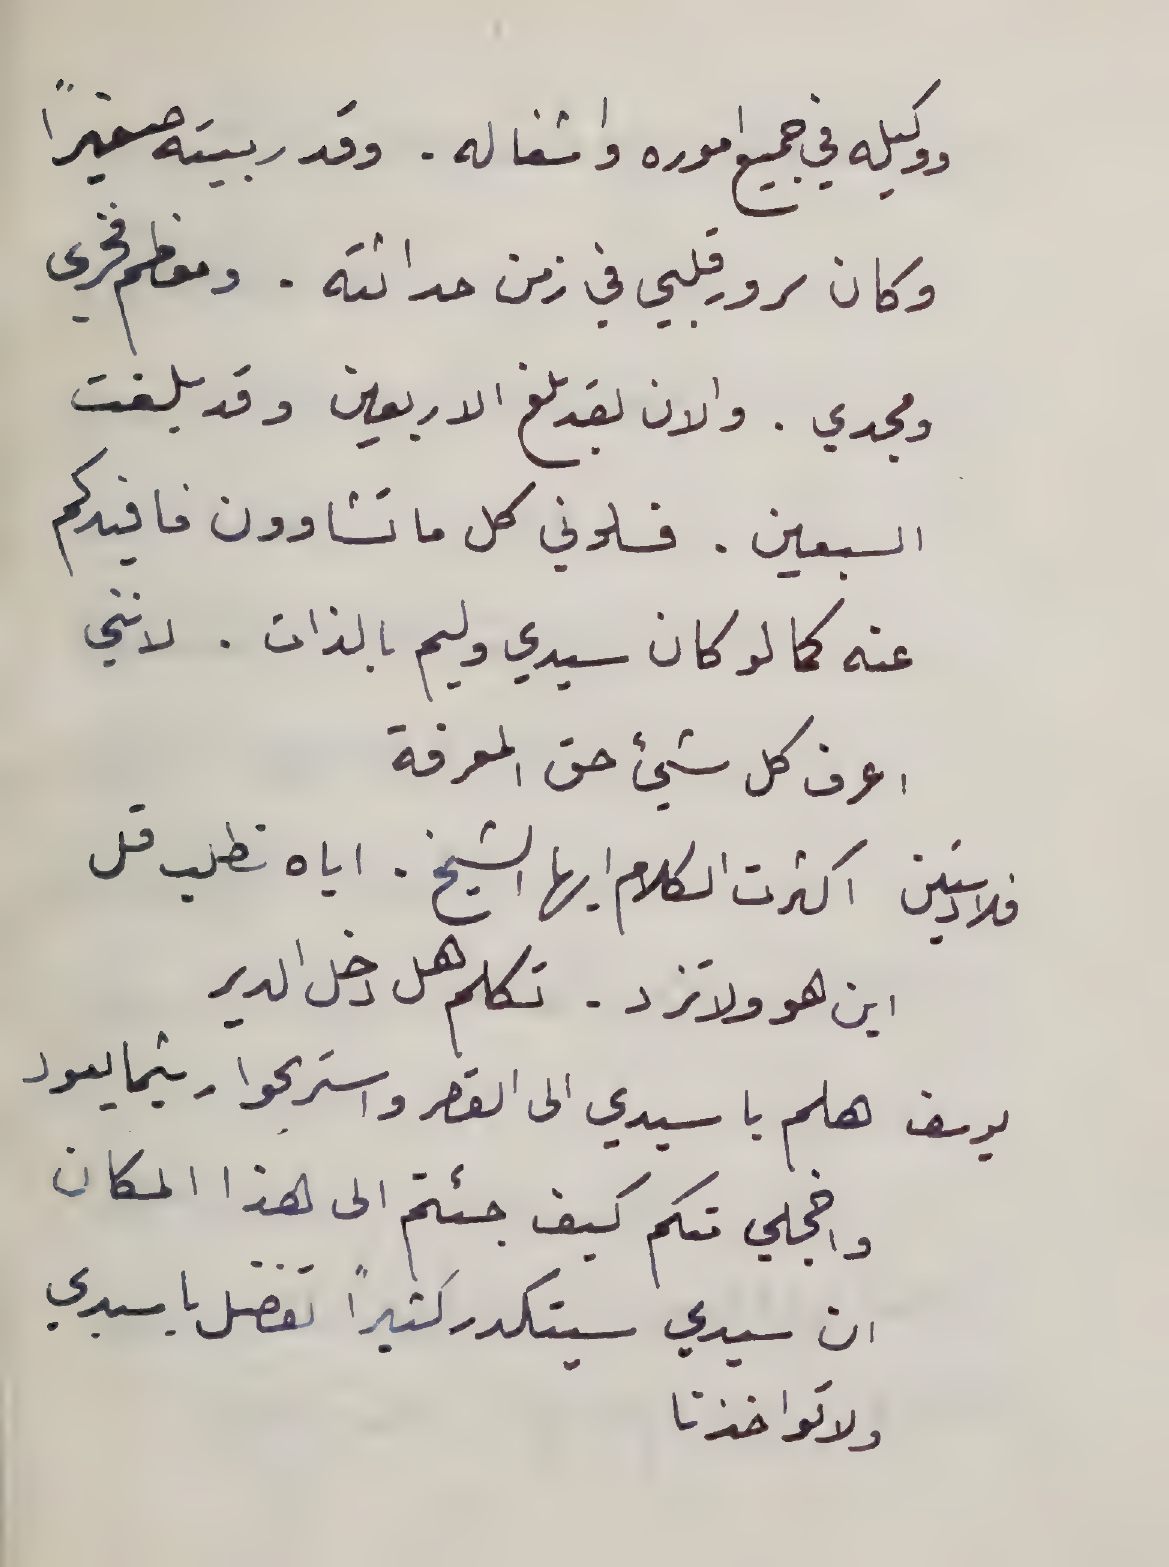 ووكيله في جميع اموره واشغاله . وقد ربيته صغيراً
وكان سرور قلبي في زمن حداثته . ومعظم فخري
ومجدي . والان لقد بلغ الاربعين وقد بلغت
السبعين . فسلوني كل ما تشاوون فافيدكم
عنه كما لو كان سيدي وليم بالذات . لانني
اعرف كل شيئ حق المعرفة
فلادستين اكثرت الكلام ايها الشيخ . اياه نطلب قل
اين هو ولا تزد . تكلم هل دخل الدير
يوسف هلم يا سيدي الى القصر واستريحوا ريثما يعود
واخجلي منكم كيف جئتم الى هذا المكان
ان سيدي سيتكدر كثيراً تفضل يا سيدي
ولا تواخذنا